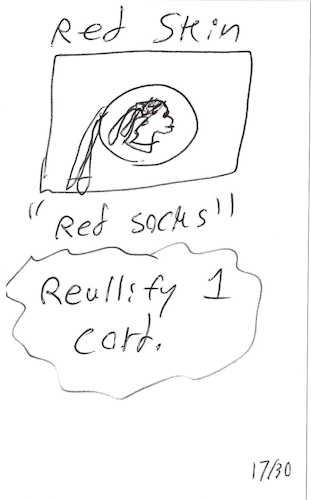 Red Skin
"Red socks"
Reullify 1
card.
17/30